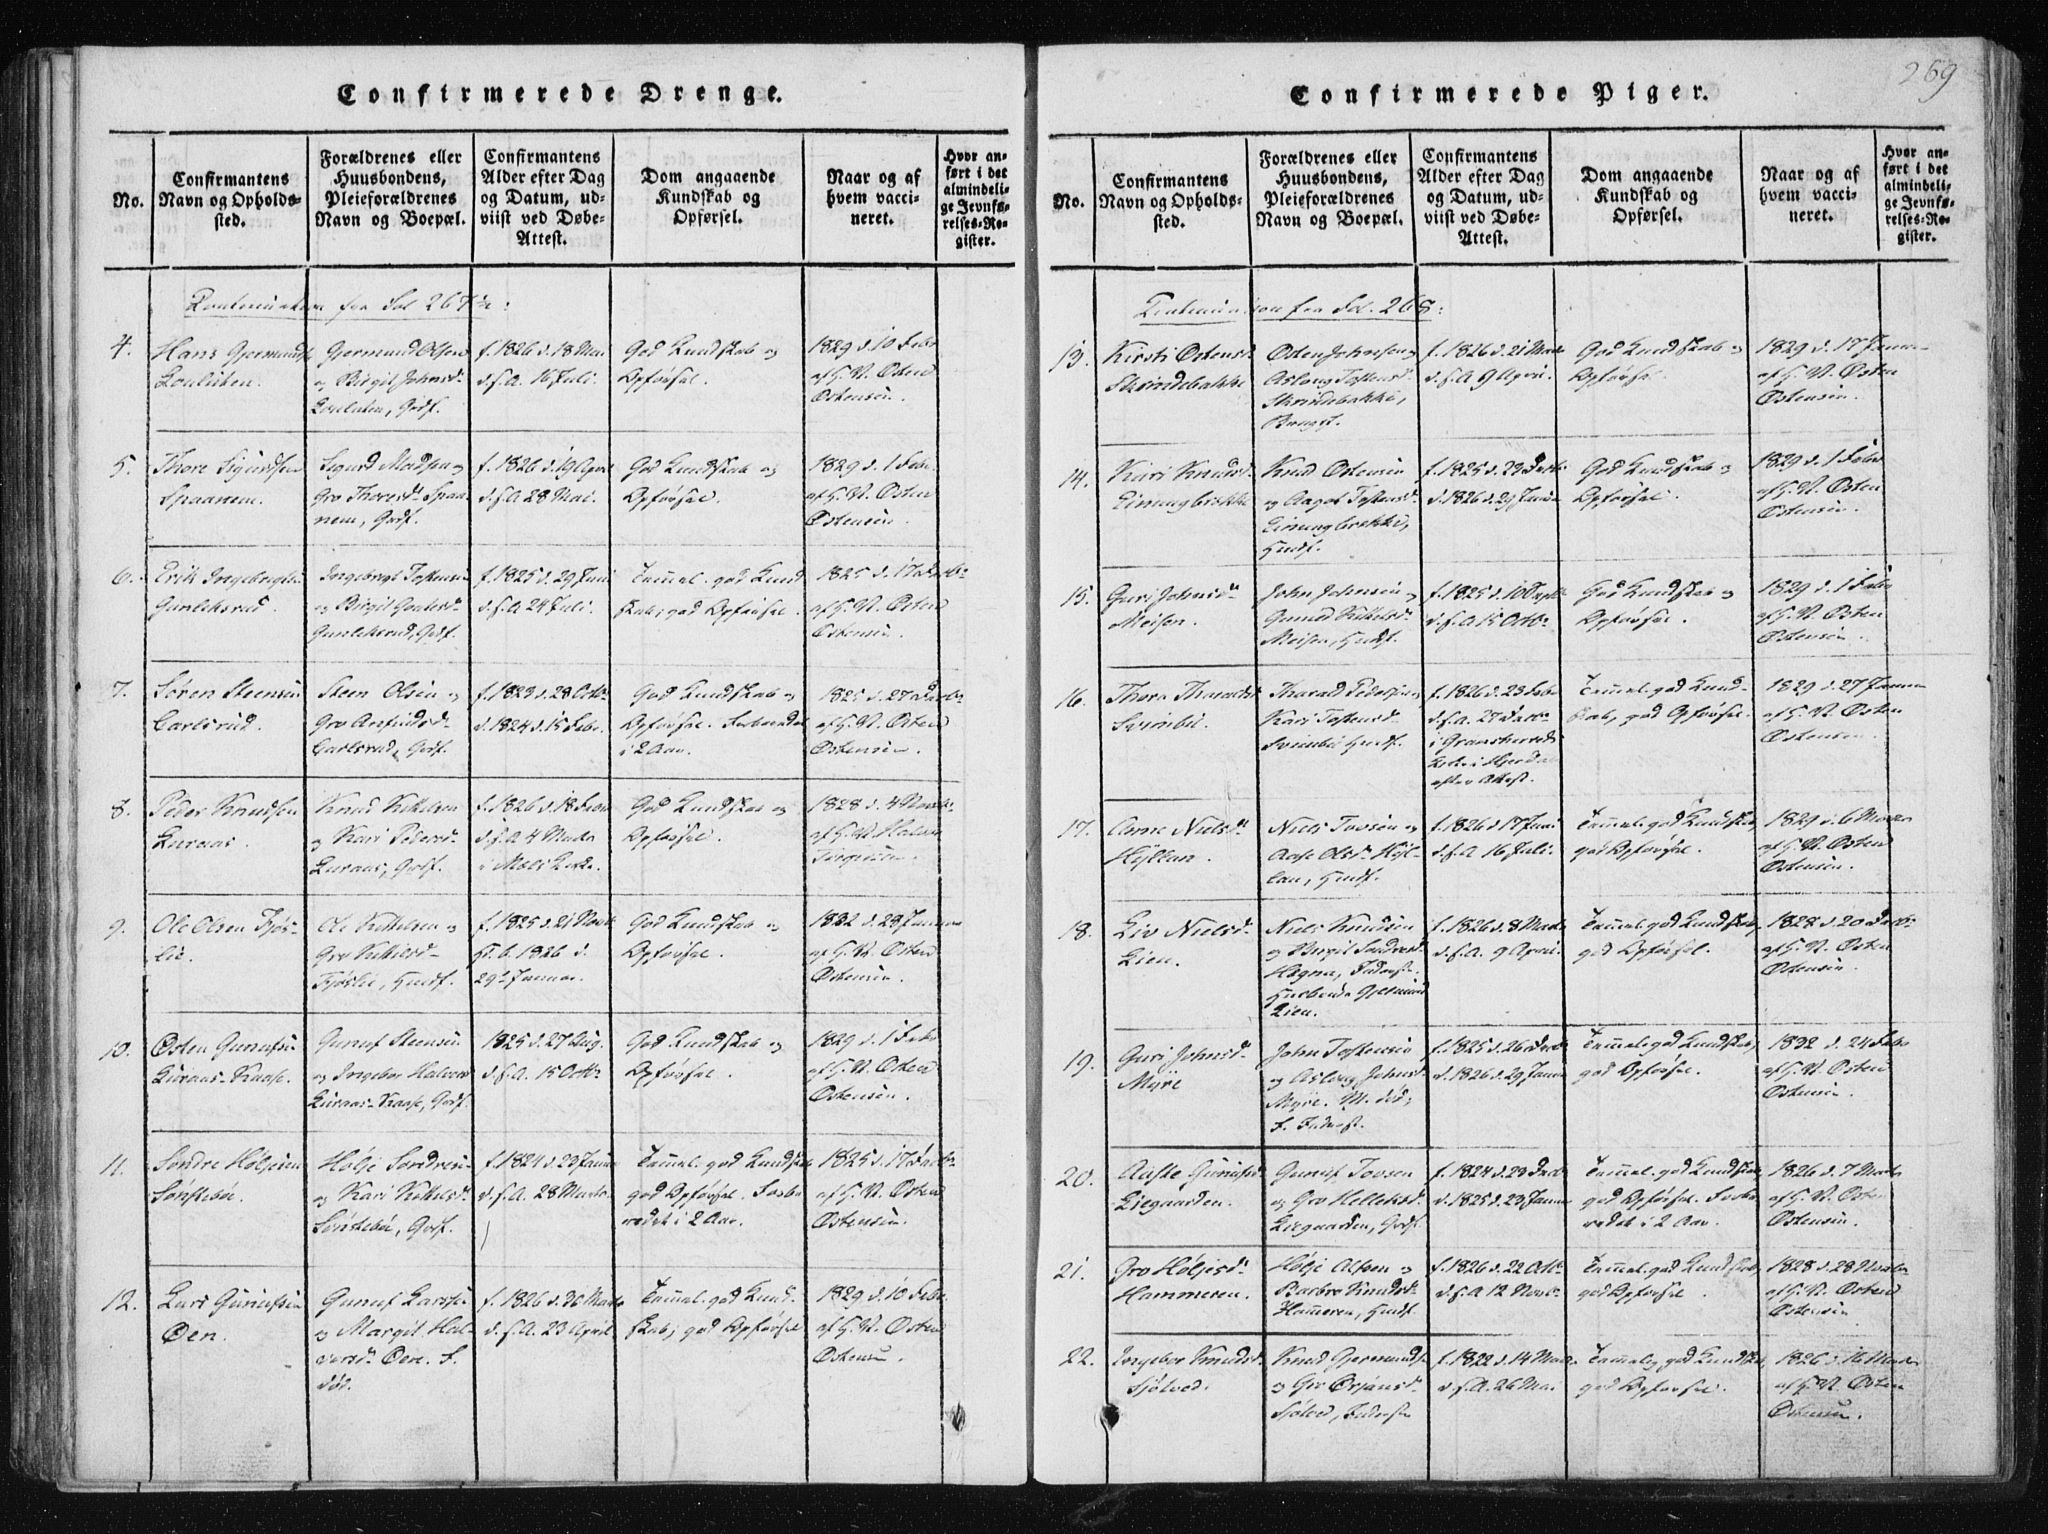 269
Confirmerede Drenge.
No.
Confirmantens
Navn og Opholds-
sted.
Forældrenes eller
Huusbondens,
Pleieforældrenes
Navn og Boepæl.
Confirmantens
Alder efter Dag
og Datum, ud-
viist ved Døbe-
Attest.
Dom angaaende
Kundskab og
Opførsel.
Naar og af
hvem vacci-
neret.
Hvor an-
ført i det
almindeli-
ge Jevnfø-
relses-Re-
gister.
4.
Hans Gjermunds
Gjermund Olsen
og Birgit Johnsd.
f. 1826 d. 18 Mai
d. s. A. 16 Juli.
God Kundskab og
Opførsel.
1829 d. 10 Febr
af G. N. Østen
Østensen.
5.
Thore Sigurdsen
Spaanem.
Sigurd Madsen og
Gro Thoresd. Spaa-
nem, Gbdf.
f. 1826 d. 19 April
d. s. A. 28 Mai.
God Kundskab og
Opførsel.
1829 d. 1 Febr
af G. N. Østen
Østensen.
6.
Erik Ingebregts
Gunleksrud.
Ingebregt Tostensen
og Birgit
Gunleksrud, Gbdf.
f. 1825 d. 29 Juni
d. s. A. 24 Juli.
Temmel. god Kund
skab, god Opførsel.
1825 d. 17 Decbr
af G. N. Østen
Østensen.
7.
Søren Steensen
Carlsrud.
Steen Olsen og
Gro Arnfindsd.
Carlsrud, Gbdf.
f. 1823 d. 28 Octbr
d. 1824 d. 15 Febr.
God Kundskab og
Opførsel. Forberedet
i 2 Aar.
1825 d. 27 Decbr
af G. N. Østen
Østensen.
8.
Peder Knudsen
Luraas.
Knud Kittelsen
og Kari Pedersd.
Luraas, Gbdf.
f. 1826 d. 18 Febr
d. s. A. 4 Marts
i Mæls Kirke.
God Kundskab og
Opførsel.
1828 d. 4 Novbr
af G. N. Halvor
9.
Ole Olsen Fjøs-
lie.
Ole Kittelsen og
Gro Kittelsd.
Fjøslie, Husf.
f. 1825 d. 21 Novbr
1826 d.
29de Januar.
God Kundskab og
Opførsel.
1832 d. 29 Januar
af G. N. Østen
Østensen.
10.
Østen Gunufsen
Luraas-Kaase.
Gunuf Steensen
og Ingebor Halvors
Luraas-Kaase, Gbdf.
1825 d. 27 Aug.
d. s. A. 15 Octbr
God Kundskab og
Opførsel.
1829 d. 1 Febr
af G. N. Østen
Østensen.
11.
Søndre Høljesen
Sønstebø.
Hølje Søndresen
og Kari Kittelsd.
Sønstebø, Gbdf.
f. 1824 d. 23 Januar
d. s. A. 28 Marts.
Temmel. god Kundskab
god Opførsel. Forbe
redet i 2 Aar.
1825 d. 17 Decbr
af G. N. Østen
Østensen.
12.
Lars Gunufsen
Øen.
Gunuf Larsen
og Margit Hal-
vorsd. Øen. F.
død.
f. 1826 d. 30 Marts
d. s. A. 23 April
Temmel. god Kund-
skab, god Opførsel
1829 d. 10 Febr.
af G. N. Østen
Østensen.
Confirmerede Piger.
No.
Confirmantens
Navn og Opholds-
sted.
Forældrenes eller
Huusbondens,
Pleieforældrenes
Navn og Boepæl.
Confirmantens
Alder efter Dag
og Datum, ud-
viist ved Døbe-
Attest.
Dom angaaende
Kundskab og
Opførsel.
Naar og af
hvem vacci-
neret.
Hvor an-
ført i det
almindeli-
ge Jevnfø-
relses-Re-
gister.
Continuation fra Fol. 268:
13.
Kirsti Østensd.
Skrindebakke
Østen Johnsen og
Aslaug Tostensd.
Skrindebakke,
f. 1826 d. 21 Marts
d. s. A. 9 April.
God Kundskab og
Opførsel.
1829 d. 17 Januar
af G. N. Østen
Østensen.
14.
Kari Knudsd.
Einungbrekke
Knud Østensen
og Aagot Tostensd.
Einungbrekke,
Husf.
f. 1825 d. 29 Decbr
d. 1826 d. 29 Januar
God Kundskab og
Opførsel.
1829 d. 1 Febr
af G. N. Østen
Østensen.
15.
Guri Johnsd.
Meisen.
John Johnsen og
Gunild Kittelsd.
Meisen, Husf.
f. 1825 d. 10 Septbr
d. s. A. 15 Octbr
God Kundskab og
Opførsel.
1829 d. 1 Febr
af G. N. Østen
Østensen.
16.
Thora Tharaldsd.
Svinebø.
Tharald Pedersen og
Kari Tostensd.
Svinebø Husf.
f. 1826 d. 23 Febr
d. s. A. 27
i Gransherreds
Kirke i Hjerdal
efter Attest.
Temmel. god Kund-
skab, god Opførsel.
1829 d. 27 Januar
af G. N. Østen
Østensen.
17.
Anne Nielsd.
Hyllan.
Niels Tovsen og
Aase Olsd. Hyl-
lan, Husf.
f. 1826 d. 17 Juni
d. s. A. 16 Juli.
Temmel. god Kundskab,
god Opførsel.
1829 d. 6 Marts
af G. N. Østen
Østensen.
18.
Liv Nielsd.
Lien.
Niels Knudsen
og Birgit
f. 1826 d. 8 Marts
d. s. A. 9 April.
Temmel. god Kundskab,
god Opførsel.
1828 d. 20 Decbr
af G. N. Østen
Østensen.
19.
Guri Johnsd.
Myre
John Tostensen
og Aslaug Johnsd.
Myre. M. død,
f. 1825 d. 26 Decbr
d. 1826 d. 29 Januar
Temmel. god Kundskab,
god Opførsel.
1832 d. 24 Febr
af G. N. Østen
Østensen.
20.
Aaste Gunufsd.
Liegaarden.
Gunuf Tovsen
og Gro Helleksd.
Liegaarden, Gbdf.
f. 1824 d. 29 Decbr
d. 1825 d. 23 Januar
Temmel. god Kundskab,
god Opførsel. Forbe
redet i 2 Aar.
1826 d. 7 Marts
af G. N. Østen
Østensen.
21.
Gro Høljesd.
Hammeren.
Hølje Olsen og
Barbro Knudsd.
Hammeren, Husf.
f. 1826 d. 22 Octbr
d. s. A. 12 Novbr
Temmel. god Kundskab,
god Opførsel.
1828 d. 28 Novbr
af G. N. Østen
Østensen.
22.
Ingebor Knudsd.
Sjølved.
Knud Gjermunds.
og Gro Ørjansd.
Sjølved,
f. 1822 d. 14 Marts
d. s. A. 26 Mai
Temmelig god Kundskab,
god Opførsel.
1826 d. 16 Marts
af G. N. Østen
Østensen.